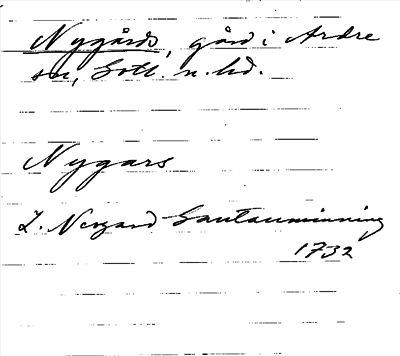 Nygårds, gård i Ardre
sn, Gotl. n. hd.
Nygars
L. Nergard Gautauminning
1732